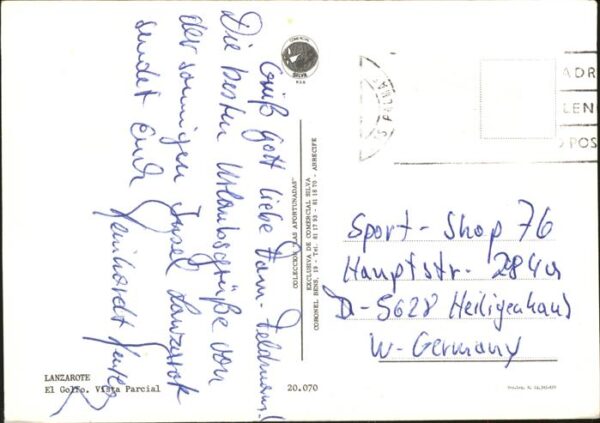 Grüß Gott liebe Fam. Feldmann!
Die besten Urlaubsgrüße von
der sonnigen Insel Lanzarote
sendet Euch
COMERCIAL
SILVA
COLECCION "LAS AFORTUNADAS"
EXCLUSIVA DE COMERCIAL SILVA
CORONEL BENS, 19 - TFS 81 17 93 - 81 16 70 - ARRECIFE
ADR
LEN
POS
Sport - Shop 76
Hauptstr. 284a
D-5628 Heiligenhaus
W-Germany
LANZAROTE
El Golfo. Vista Parcial
20.070